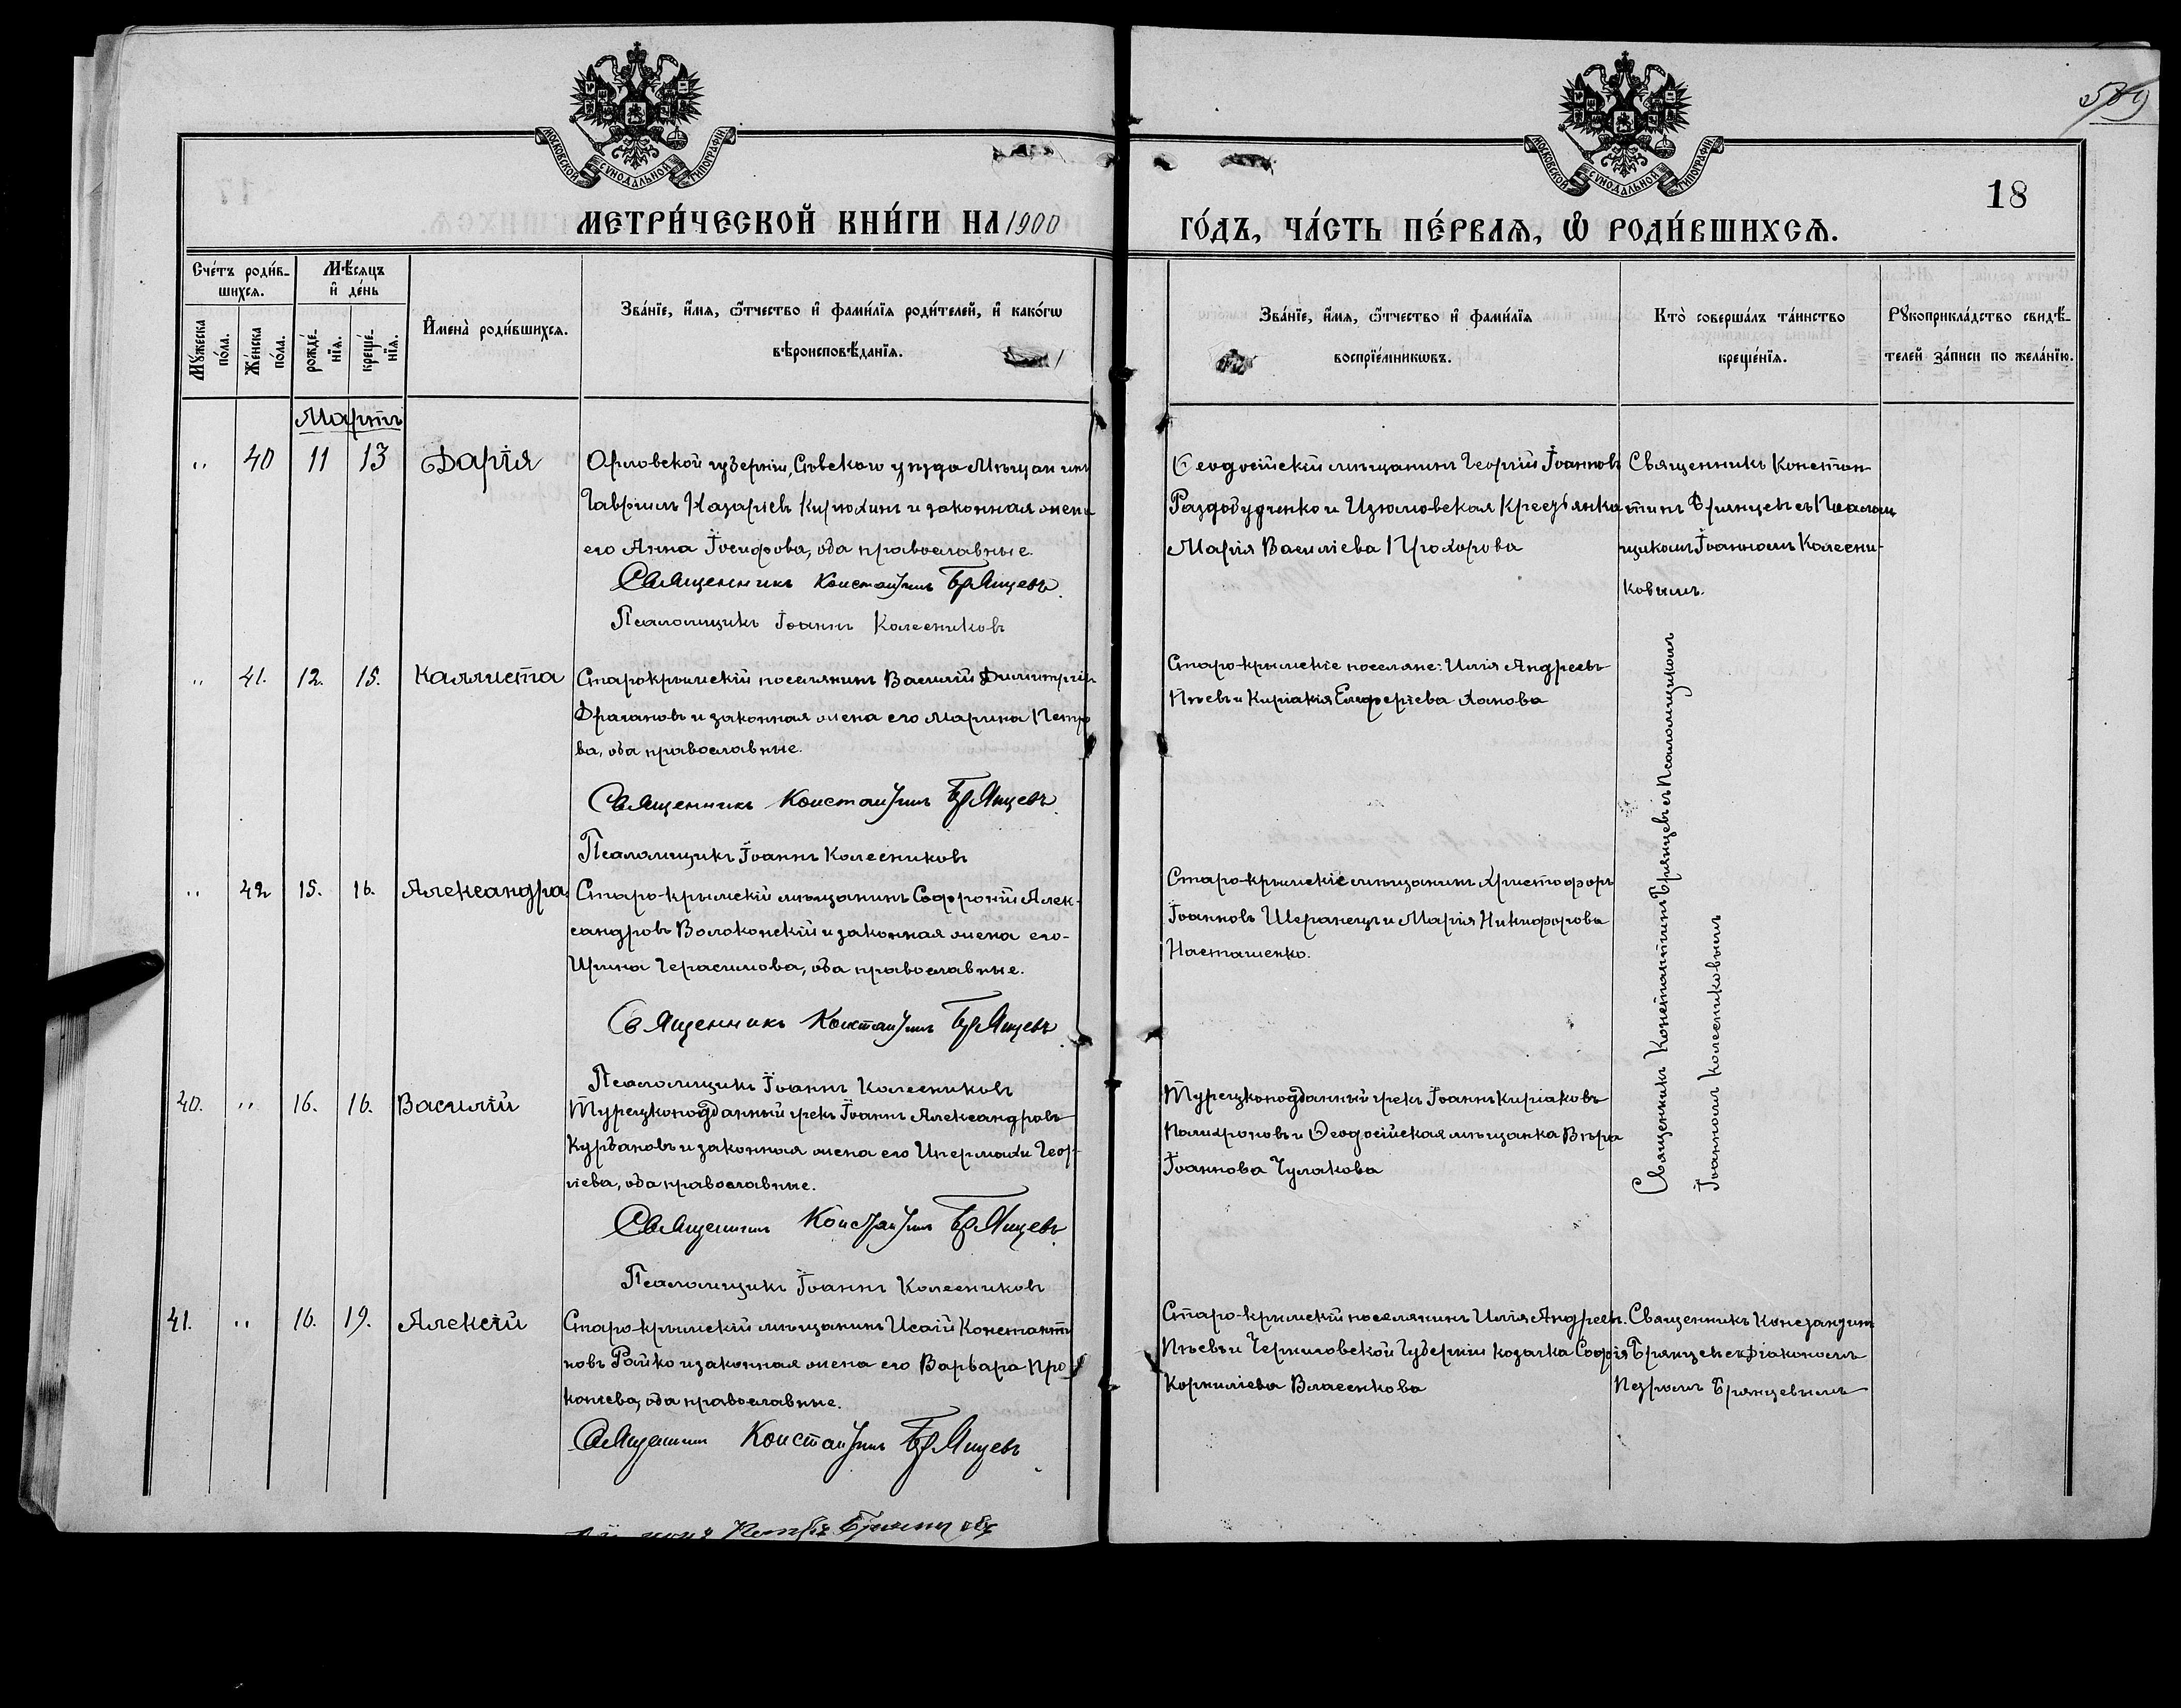 509
МОСКОВСКОЙ СѴНОДАЛЬНОЙ ТИПОГРАФІИ
МОСКОВСКОЙ СѴНОДАЛЬНОЙ ТИПОГРАФІИ
18
МЕТРИ́ЧЕСКОЙ КНИ́ГИ НА 1900
ГО́ДЪ, ЧА́СТЬ ПЕ́РВАѦ, Ѽ РОДИ́ВШИХСѦ.
Сче́тъ роди́в-
шихсѧ.
Мꙋ́жеска
по́ла.
Же́нска
по́ла.
Мѣ́сѧцъ
и҆ де́нь
рожде́-
нїѧ.
креще́-
нїѧ.
И҆мена̀ роди́вшихсѧ.
Зва́нїе, и҆́мѧ, ѻ҆́тчество и҆ фами́лїѧ роди́телей, и҆ како́гѡ
вѣроисповѣ́данїѧ.
Зва́нїе, и҆́мѧ, ѻ҆́тчество и҆ фами́лїѧ
воспрїе́мникѡвъ.
Кто̀ соверша́лъ та́инство
креще́нїѧ.
Рꙋкоприкла́дство свидѣ́-
телей за́писи по жела́нїю.
Мартъ
„ 40 11 13 Дарія
Орловской губерніи, Сѣвскаго уѣзда Мѣщанинъ
Гавріилъ Назаріевъ Кирюхинъ и законная жена
его Анна Іосифова, оба православные.
Священникъ Константинъ Брянцевъ.
Псаломщикъ Іоаннъ Колесниковъ
Ѳеодосійскій мѣщанинъ Георгій Іоанновъ
Раздобудченко и Изюмовская Крестьянка
Марія Василіева Прохорова
Священникъ Констан-
тинъ Брянцевъ съ Псалом-
щикомъ Іоанномъ Колесни-
ковымъ.
„ 41. 12. 15. Каллиста
Старокрымскій поселянинъ Василій Димитріевъ
Драгановъ и законная жена его Марина Петро
ва, оба православные.
Священникъ Константинъ Брянцевъ.
Псаломщикъ Іоаннъ Колесниковъ
Старо-крымскіе поселяне: Илія Андреевъ
Пѣевъ и Киріакія Елеферіева Ханова
Священникъ Константинъ Брянцевъ съ Псаломщикомъ
Іоанномъ Колесниковымъ
„ 42 15. 16. Александра
Старо-крымскій мѣщанинъ Софроній Алек-
сандровъ Волоконскій и законная жена его-
Ирина Герасимова, оба православные.
Священникъ Константинъ Брянцевъ
Псаломщикъ Іоаннъ Колесниковъ
Старо-крымскіе мѣщанинъ Христофоръ
Іоанновъ Шеранецъ и Марія Никифорова
Насташенко.
40. „ 16. 16. Василій
Турецкоподданный грекъ Іоаннъ Александровъ
Курбановъ и законная жена его Геор-
гіева, оба православные.
Священникъ Константинъ Брянцевъ.
Псаломщикъ Іоаннъ Колесниковъ
Турецкоподданный грекъ Іоаннъ Киріаковъ
Полихроновъ и Ѳеодосійская мѣщанка Вѣра
Іоаннова Чулакова
41. „ 16. 19. Алексій
Старо-крымскій мѣщанинъ Исаій Константи
новъ Райко и законная жена его Варвара Про
копіева, оба православные.
Священникъ Константинъ Брянцевъ
Старо-крымскій поселянинъ Илія Андреевъ.
Пѣевъ и Черниговской Губерніи козачка Софія
Корниліева Власенкова
Священникъ Константинъ
Брянцевъ съ Діакономъ
Петромъ Брянцевымъ